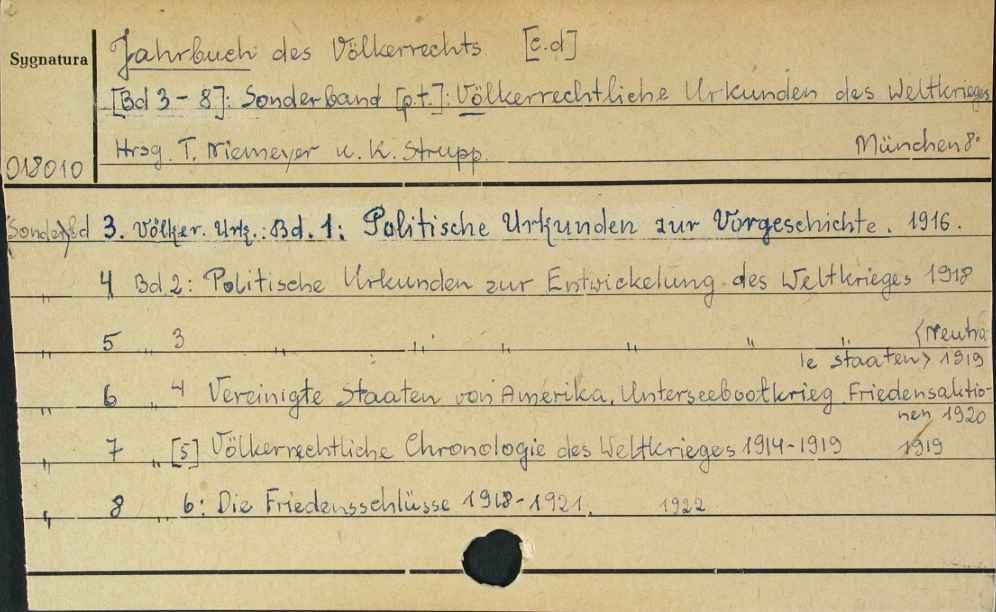 Sygnatura
Jahrbuch des Völkerrechts. [c.d]
[Bd 3-8]: Sonderband [p.t.]: Völkerrechtliche Urkunden des Weltkrieges
Hrsg. T. Niemeyer u. K. Strupp.
München 8°
018010
Sonder Bd 3. Völker. Urk.: Bd. 1: Politische Urkunden zur Vorgeschichte. 1916.
" 4 Bd 2: Politische Urkunden zur Entwickelung des Weltkrieges 1918
" 5 " 3 " " " " " " (Neutra
le Staaten) 1919
" 6 4 Vereinigte Staaten von Amerika. Unterseebootkrieg. Friedensaktio-
nen 1920
" 7 " [5] Völkerrechtliche Chronologie des Weltkrieges 1914-1919 1919
" 8 6: Die Friedensschlüsse 1918-1921. 1922